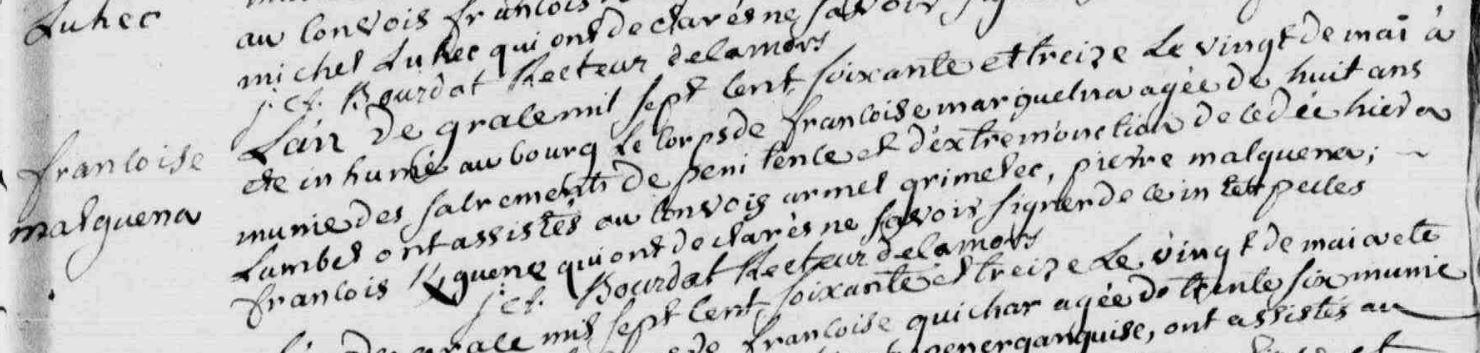 Luhec
au Convois francois
michel Luhec qui ont declarés ne savoir
j: cf: Bourdat Recteur delamors
francoise
malguena
Lan De grace mil sept cent soixante et treize Le vingt de mai à
ete inhumé au bourg Le Corps de francoise marguelna agée de huit ans
munie des sacrements de penitence et d'extremonction decedée hier a
Lambel ont assistés au Convois armel grimelec, pierre malguena;
francois Kguenez qui ont declarés ne savoir signer de ce interpeles
j: cf: Bourdat Recteur delamors
Lan De grace mil sept cent soixante et treize Le vingt de mai a eté
de francoise quichar agée de trente six munie
penerganguise, ont assistés au